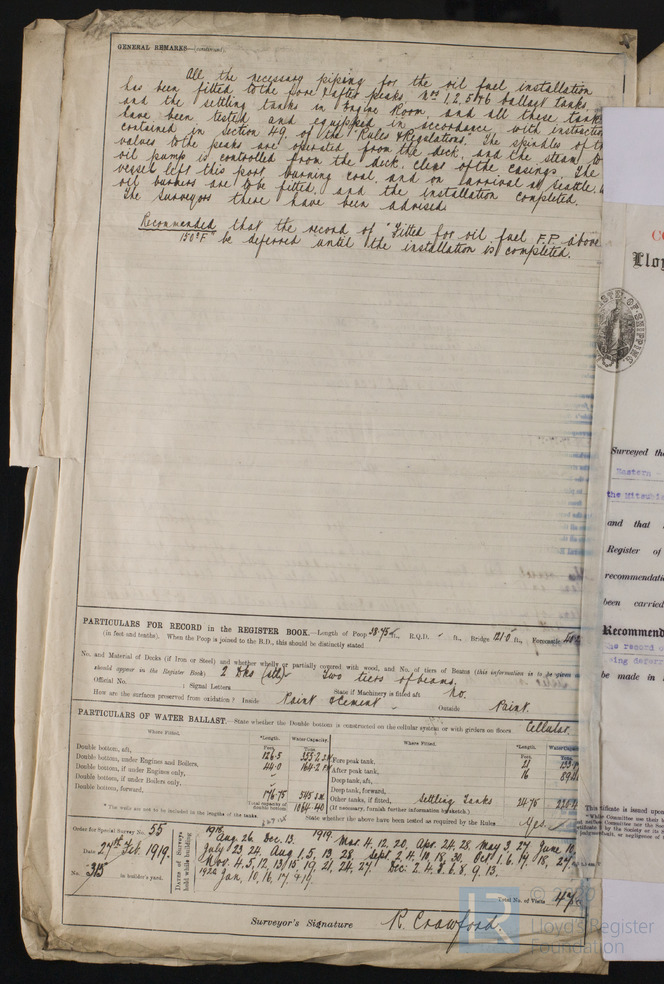 GENERAL REMARKS—(continued).
All the necessary piping for the oil fuel installation
has been fitted to the fore & after peaks Nos 1, 2, 5 & 6 ballast tanks,
and the settling tanks in Engine Room, and all these tank
have been tested and equipped in accordance with instruction
contained in Section 49 of the "Rules & Regulations". The spindles of th
valves to the peaks are operated from the deck, and the steam to
oil pump is controlled from the deck, clear of the casings. The
vessel left this port burning coal, and on arrival at Seattle
oil burners are to be fitted, and the installation completed.
The Surveyors there have been advised.
Recommended that the record of "Fitted for oil fuel F.P. above
150°F. be deferred until the installation is completed.
PARTICULARS FOR RECORD in the REGISTER BOOK.—Length of Poop 38.75 ft., R.Q.D. - ft., Bridge 121.0 ft., Forecastle
(in feet and tenths). When the Poop is joined to the B.D., this should be distinctly stated
No. and Material of Decks (if Iron or Steel) and whether wholly or partially covered with wood, and No. of tiers of Beams (this information is to be given as
should appear in the Register Book) 2 Dks (stl) - Two tiers of beams.
Official No. ; Signal Letters State if Machinery is fitted aft no.
How are the surfaces preserved from oxidation? Inside Paint & Cement - Outside Paint.
PARTICULARS OF WATER BALLAST.—State whether the Double bottom is constructed on the cellular system or with girders on floors Cellular.
Where Fitted. *Length. Water Capacity. Where Fitted. *Length. Water Capacity
Feet. Tons. Feet. Tons.
Double bottom, aft, 126.5 Fore peak tank, 21
Double bottom, under Engines and Boilers, 44.0 After peak tank, 16
Double bottom, if under Engines only, - Deep tank, aft,
Double bottom, if under Boilers only, - Deep tank, forward,
Double bottom, forward, 176.75 345 Other tanks, if fitted, Settling Tanks 24.75
Total capacity of double bottom 1064.40 (If necessary, furnish further information by sketch.)
* The wells are not to be included in the lengths of the tanks. State whether the above have been tested as required by the Rules Yes.
Order for Special Survey No. 55
Date 27th Feb. 1919.
No. 315 in builder's yard.
Dates of Surveys held while building
1918. Aug. 26. Dec. 13. 1919. Mar. 4. 12. 20. Apr. 24. 28. May 3. 27. June 10.
July 23. 24. Aug. 1. 5. 13. 28. Sept. 2. 4. 10. 18. 30. Oct. 1. 6. 9. 18. 27.
Nov. 4. 5. 12. 13. 15. 19. 21. 24. 27. Dec. 2. 4. 5. 6. 8. 9. 13.
1920 Jan. 10. 16. 17. 9. 19.
Total No. of Visits 47
Surveyor's Signature R. Crawford.
Lloy
Surveyed the
Eastern
the Mitsubi
and that
Register of
recommendatio
been carried
Recommend
he record o
eing defer
be made in
This certificate is issued upon
LR
Lloyd's Register
Foundation